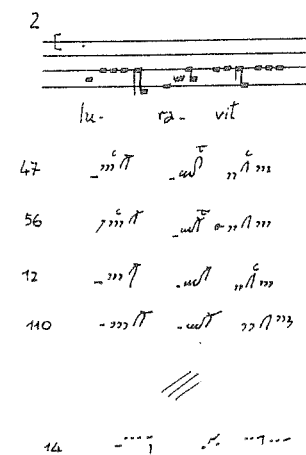 2
lu- ra- vit
47
56
12
110
14